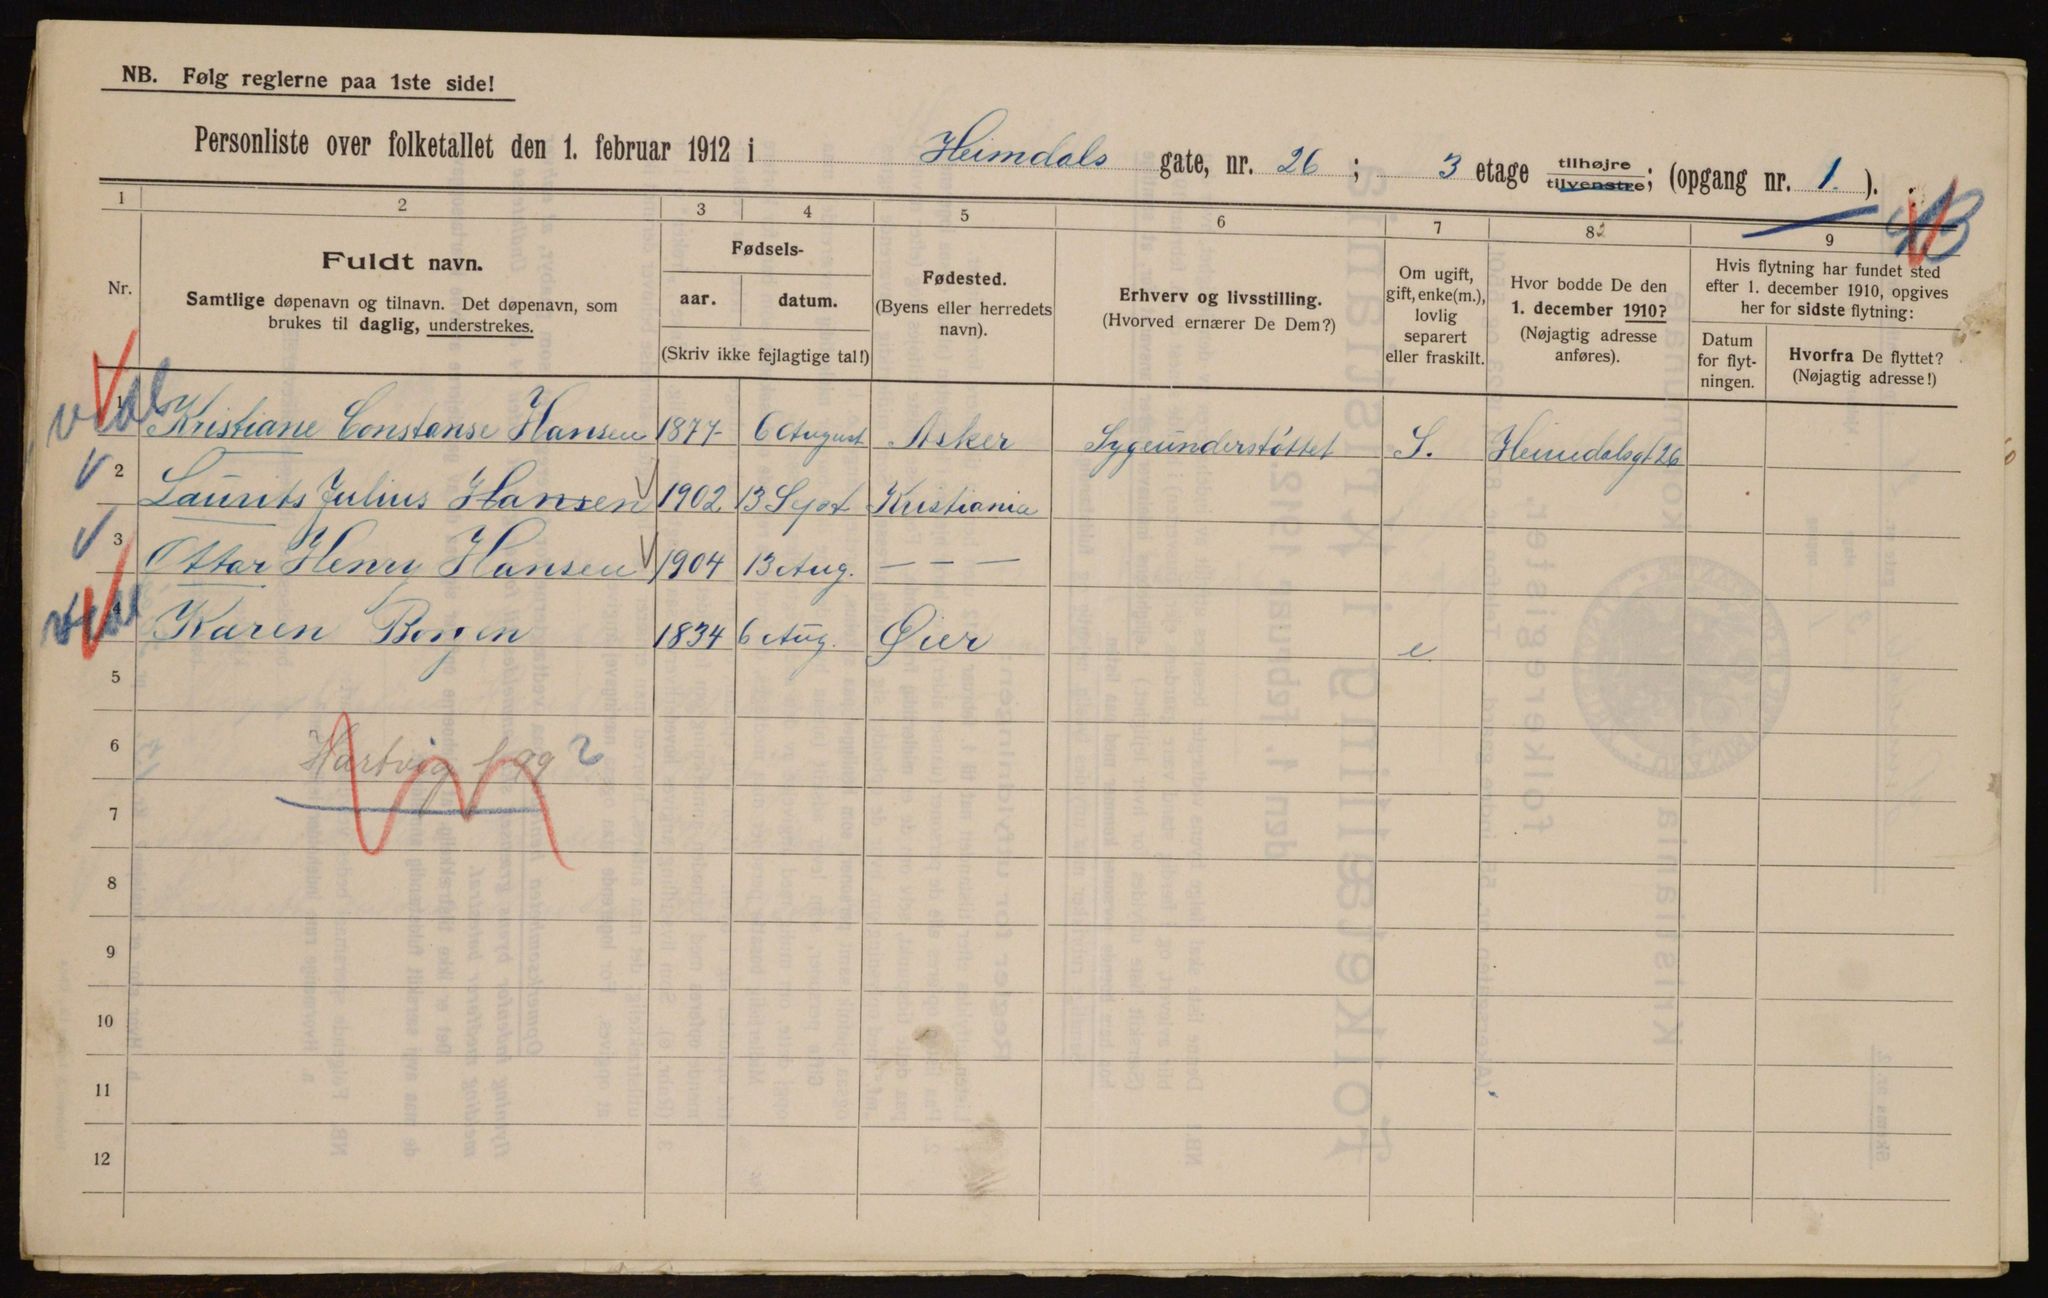 NB. Følg reglerne paa 1ste side!
Personliste over folketallet den 1. februar 1912 i Heimdals gate, nr. 26; 3 etage tilhøjre tilvenstre; (opgang nr. 1.).
1 2 3 4 5 6 7 8 2 9
Nr.
Fuldt navn.
Samtlige døpenavn og tilnavn. Det døpenavn, som
brukes til daglig, understrekes.
Fødsels-
aar. datum.
(Skriv ikke fejlagtige tal!)
Fødested.
(Byens eller herredets
navn).
Erhverv og livsstilling.
(Hvorved ernærer De Dem?)
Om ugift,
gift, enke(m.),
lovlig
separert
eller fraskilt.
Hvor bodde De den
1. december 1910?
(Nøjagtig adresse
anføres).
Hvis flytning har fundet sted
efter 1. december 1910, opgives
her for sidste flytning:
Datum
for flyt-
ningen.
Hvorfra De flyttet?
(Nøjagtig adresse!)
1 Kristiane Constanse Hansen 1877 6 August Asker Sygeunderstøttet S. Heimdalsgt 26
2 Laurits Julius Hansen 1902 13 Sept Kristiania
3 Ottar Henry Hansen 1904 13 Aug. — — —
4 Karen Borgen 1834 6 Aug. Øier e
5
6 Hartvig 2
7
8
9
10
11
12